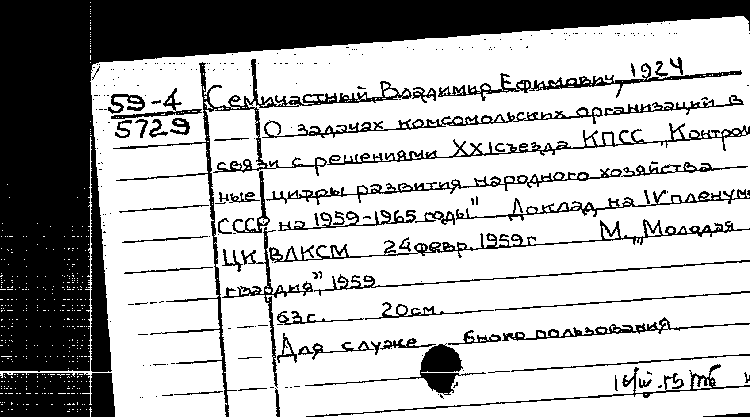 59-4 Семичастный Владимир Ефимович, 1924
5729 О задачах комсомольских организаций в
связи с решениями XXI съезда КПСС „Контроль
ные цифры развития народного хозяйства
СССР на 1959-1965 годы" Доклад на IV пленуме
ЦК ВЛКСМ 24 февр. 1959г М. „Молодая
гвардия", 1959
63с. 20см.
Для служе бного пользования